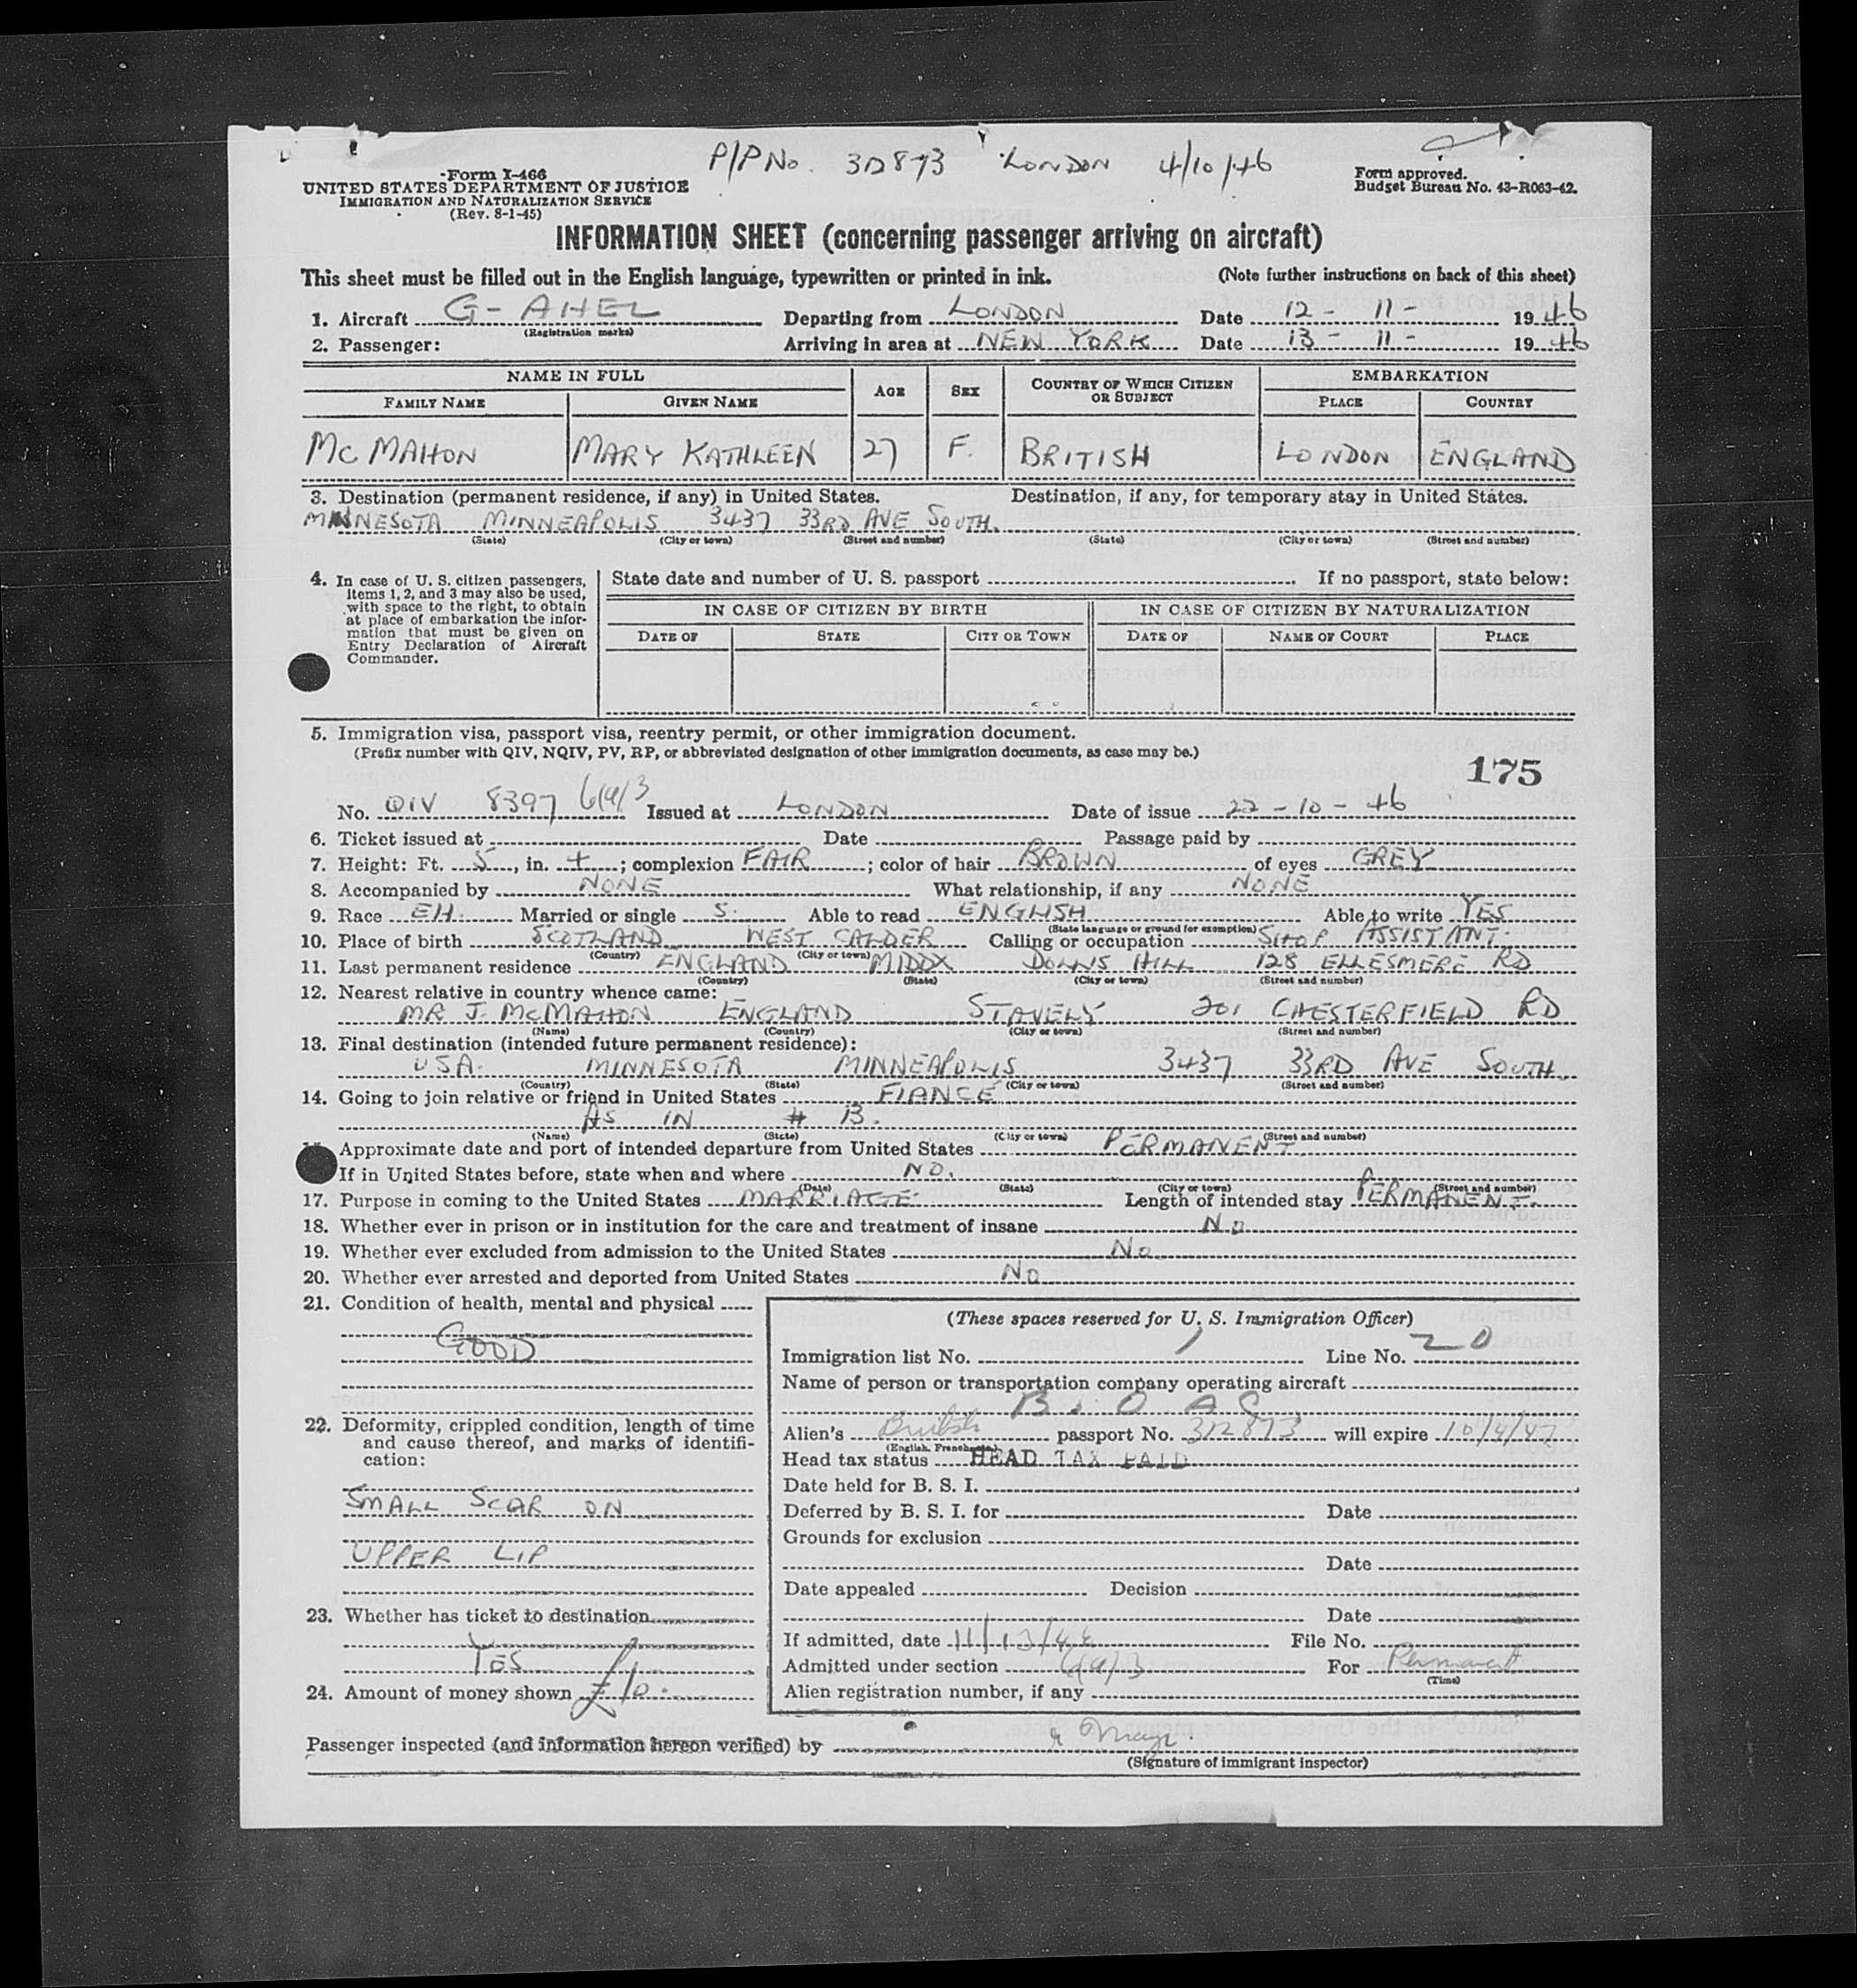 P/P No. 312873 LONDON 4/10/46
Form I-466
UNITED STATES DEPARTMENT OF JUSTICE
IMMIGRATION AND NATURALIZATION SERVICE
(Rev. 8-1-45)
Form approved.
Budget Bureau No. 43-R063-42.
INFORMATION SHEET (concerning passenger arriving on aircraft)
This sheet must be filled out in the English language, typewritten or printed in ink. (Note further instructions on back of this sheet)
1. Aircraft G-AHEL Departing from LONDON Date 12-11- 1946
(Registration marks)
2. Passenger: Arriving in area at NEW YORK Date 13-11- 1946
NAME IN FULL AGE SEX COUNTRY OF WHICH CITIZEN OR SUBJECT EMBARKATION
FAMILY NAME GIVEN NAME PLACE COUNTRY
MC MAHON MARY KATHLEEN 27 F. BRITISH LONDON ENGLAND
3. Destination (permanent residence, if any) in United States. Destination, if any, for temporary stay in United States.
MINNESOTA MINNEAPOLIS 3437 33RD AVE SOUTH.
(State) (City or town) (Street and number) (State) (City or town) (Street and number)
4. In case of U. S. citizen passengers, items 1, 2, and 3 may also be used, with space to the right, to obtain at place of embarkation the information that must be given on Entry Declaration of Aircraft Commander.
State date and number of U. S. passport If no passport, state below:
IN CASE OF CITIZEN BY BIRTH IN CASE OF CITIZEN BY NATURALIZATION
DATE OF STATE CITY OR TOWN DATE OF NAME OF COURT PLACE
5. Immigration visa, passport visa, reentry permit, or other immigration document.
(Prefix number with QIV, NQIV, PV, RP, or abbreviated designation of other immigration documents, as case may be.)
175
No. QIV 8397 6(a)3 Issued at LONDON Date of issue 22-10-46
6. Ticket issued at Date Passage paid by
7. Height: Ft. 5, in. 4; complexion FAIR; color of hair BROWN of eyes GREY
8. Accompanied by NONE What relationship, if any NONE
9. Race EH. Married or single S. Able to read ENGLISH Able to write YES
(State language or ground for exemption)
10. Place of birth SCOTLAND WEST CALDER Calling or occupation SHOP ASSISTANT.
(Country) (City or town)
11. Last permanent residence ENGLAND MIDDX DOLLIS HILL 128 ELLESMERE RD
(Country) (State) (City or town) (Street and number)
12. Nearest relative in country whence came:
MR J. MCMAHON ENGLAND STAVELY 201 CHESTERFIELD RD
(Name) (Country) (City or town) (Street and number)
13. Final destination (intended future permanent residence):
USA. MINNESOTA MINNEAPOLIS 3437 33RD AVE SOUTH.
(Country) (State) (City or town) (Street and number)
14. Going to join relative or friend in United States FIANCE
AS IN # 13.
(Name) (State) (City or town) (Street and number)
Approximate date and port of intended departure from United States PERMANENT
If in United States before, state when and where NO.
(Date) (State) (City or town) (Street and number)
17. Purpose in coming to the United States MARRIAGE. Length of intended stay PERMANENT.
18. Whether ever in prison or in institution for the care and treatment of insane No
19. Whether ever excluded from admission to the United States No
20. Whether ever arrested and deported from United States No
21. Condition of health, mental and physical
GOOD
22. Deformity, crippled condition, length of time and cause thereof, and marks of identification:
SMALL SCAR ON
UPPER LIP
23. Whether has ticket to destination
YES
24. Amount of money shown £10.
(These spaces reserved for U. S. Immigration Officer)
Immigration list No. 1 Line No. 20
Name of person or transportation company operating aircraft
B.O.A.C.
Alien's British passport No. 312873 will expire 10/4/47
(English, French, etc.)
Head tax status HEAD TAX PAID
Date held for B. S. I.
Deferred by B. S. I. for Date
Grounds for exclusion
Date
Date appealed Decision
Date
If admitted, date 11/13/46 File No.
Admitted under section 6(a)3 For Permanent
(Time)
Alien registration number, if any
Passenger inspected (and information hereon verified) by
(Signature of immigrant inspector)